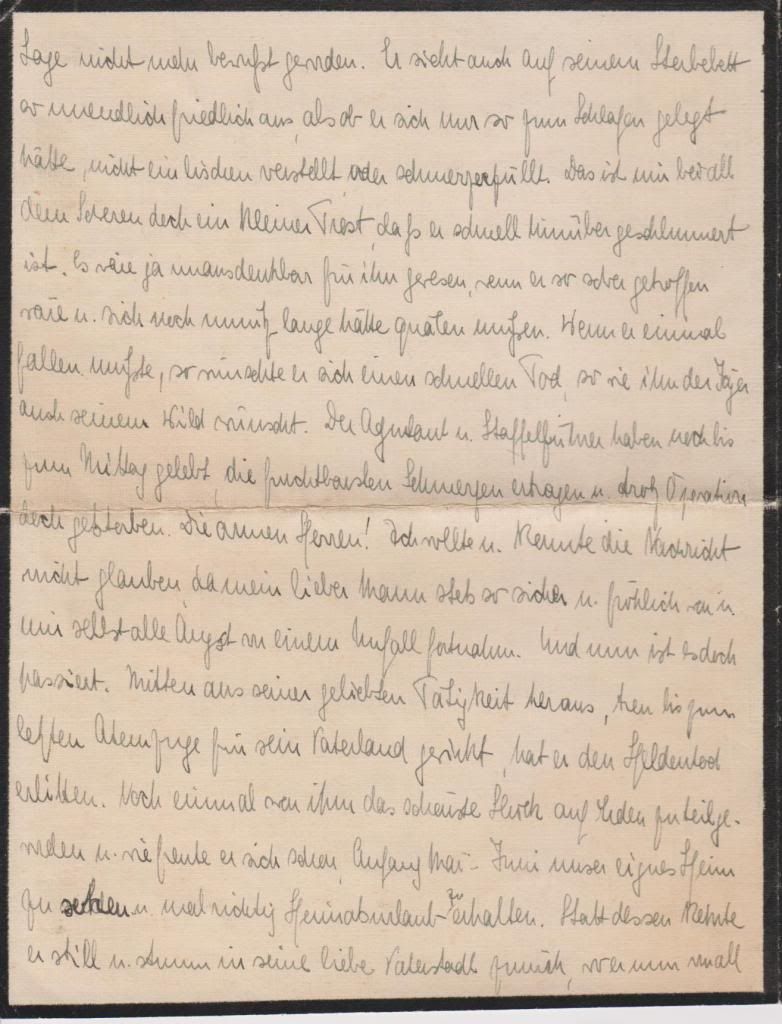 Lage nicht mehr bewußt geworden. Er sieht auch auf seinem Sterbebett
so unendlich friedlich aus, als ob er sich nur so zum Schlafen gelegt
hätte, nicht ein bischen verstellt oder schmerzerfüllt. Das ist mir bei all
dem Schweren doch ein kleiner Trost, daß er schnell hinübergeschlummert
ist. Es wäre ja unausdenkbar für ihn gewesen, wenn er so schwer getroffen
wäre u. sich noch unnütz lange hätte quälen müßen. Wenn er einmal
fallen mußte, so wünschte er sich einen schnellen Tod, so wie ihn der Jäger
auch seinem Wild wünscht. Der Agutant u. Staffelführer haben noch bis
zum Mittag gelebt, die furchtbarsten Schmerzen ertragen u. trotz Operation
doch gestorben. Die armen Herren! Ich wollte u. konnte die Nachricht
nicht glauben, da mein lieber Mann stets so sicher u. fröhlich war u.
mir selbst alle Angst vor einem Unfall fortnahm. Und nun ist es doch
passiert. Mitten aus seiner geliebten Tätigkeit heraus, treu bis zum
letzten Atemzuge für sein Vaterland gewirkt, hat er den Heldentod
erlitten. Noch einmal war ihm das schönste Glück auf Erden zuteilge-
worden u. wie freute er sich schon, Anfang Mai - Juni unser eignes Heim
zu sehen u. mal richtig Heimaturlaub zu erhalten. Statt dessen kehrte
er still u. stumm in seine liebe Vaterstadt zurück, wo er nun